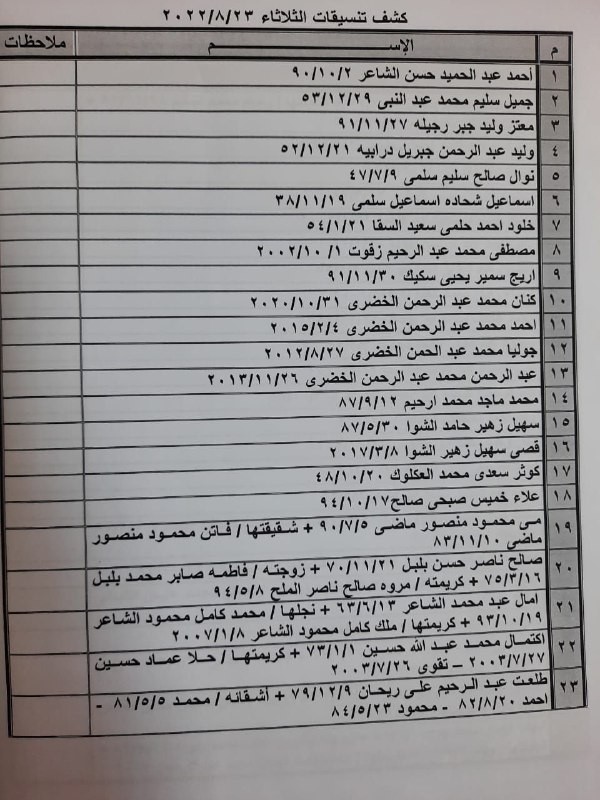 كشف تنسيقات الثلاثاء ٢٠٢٢/٨/٢٣
م الإســـم ملاحظات
١ أحمد عبد الحميد حسن الشاعر ٩٠/١٠/٢
٢ جميل سليم محمد عبد النبى ٥٣/١٢/٢٩
٣ معتز وليد جبر رجيله ٩١/١١/٢٧
٤ وليد عبد الرحمن جبريل درابيه ٥٢/١٢/٢١
٥ نوال صالح سليم سلمى ٤٧/٧/٩
٦ اسماعيل شحاده اسماعيل سلمى ٣٨/١١/١٩
٧ خلود احمد حلمى سعيد السقا ٥٤/١/٢١
٨ مصطفى محمد عبد الرحيم زقوت ١/ ٢٠٠٢/١٠
٩ اريج سمير يحيى سكيك ٩١/١١/٣٠
١٠ كنان محمد عبد الرحمن الخضرى ٢٠٢٠/١٠/٣١
١١ احمد محمد عبد الرحمن الخضرى ٢٠١٥/٢/٤
١٢ جوليا محمد عبد الحمن الخضرى ٢٠١٢/٨/٢٧
١٣ عبد الرحمن محمد عبد الرحمن الخضرى ٢٠١٣/١١/٢٦
١٤ محمد ماجد محمد ارحيم ٨٧/٩/١٢
١٥ سهيل زهير حامد الشوا ٨٧/٥/٣٠
١٦ قصى سهيل زهير الشوا ٢٠١٧/٣/٨
١٧ كوثر سعدى محمد العكلوك ٤٨/١٠/٢٠
١٨ علاء خميس صبحى صالح ٩٤/١٠/١٧
١٩ مى محمود منصور ماضى ٩٠/٧/٥ + شقيقتها / فاتن محمود منصور
ماضى ٨٣/١١/١٠
٢٠ صالح ناصر حسن بلبل ٧٠/١١/٢١ + زوجته / فاطمه صابر محمد بلبل
٧٥/٣/١٦ + كريمته / مروه صالح ناصر الملح ٩٤/٥/٨
٢١ امال عبد محمد الشاعر ٦٣/٦/١٣ + نجلها / محمد كامل محمود الشاعر
٩٣/١٠/١٩ + كريمتها / ملك كامل محمود الشاعر ٢٠٠٧/١/٨
٢٢ اكتمال محمد عبد الله حسين ٧٣/١/١ + كريمتها / حلا عماد حسين
٢٠٠٣/٧/٢٧ – تقوى ٢٠٠٣/٧/٢٦
٢٣ طلعت عبد الرحيم على ريحان ٧٩/١٢/٩ + أشقائه / محمد ٨١/٥/٥ -
احمد ٨٢/٨/٢٠ - محمود ٨٤/٥/٢٣